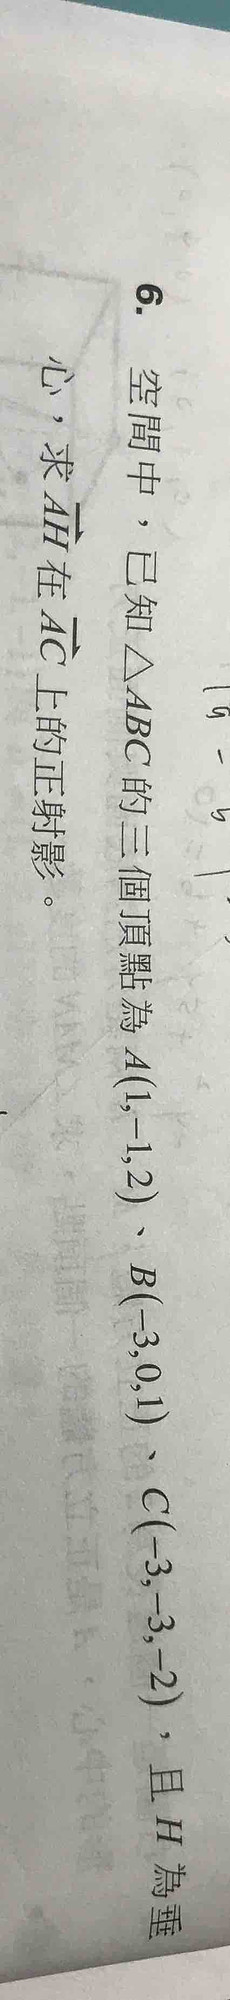 6. 空間中，已知△ABC的三個頂點為A(1,−1,2)、B(−3,0,1)、C(−3,−3,−2)，且H為垂
心，求AH在AC上的正射影。